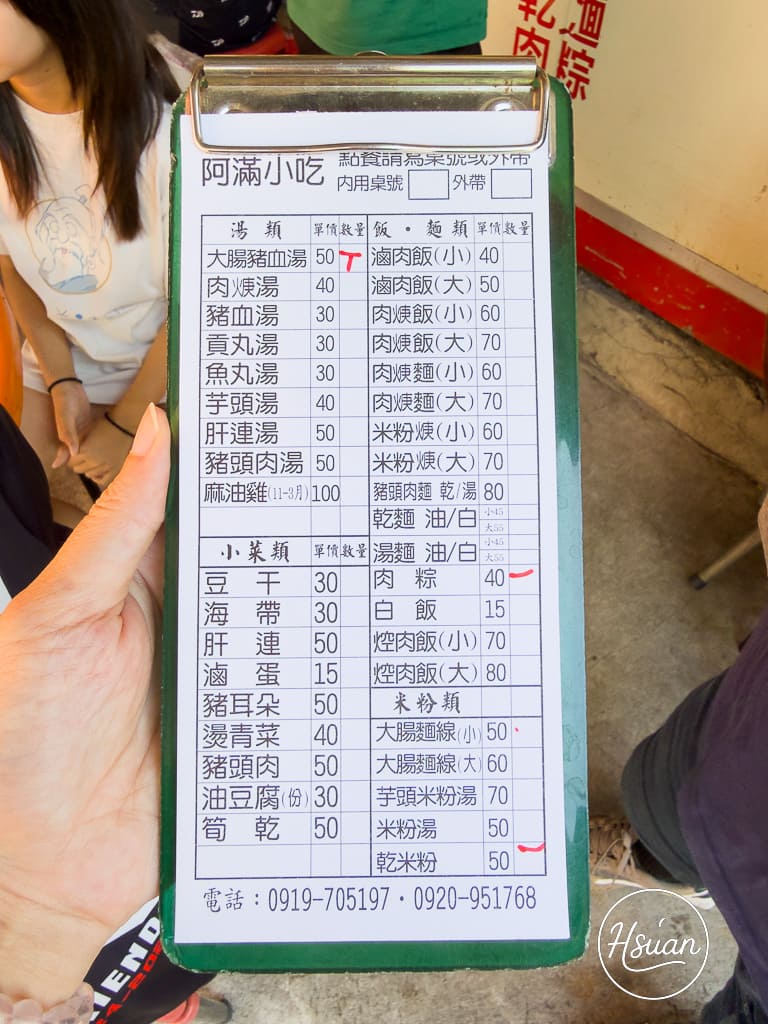 麵粽
乾肉
阿滿小吃
點餐請寫桌號或外帶
內用桌號 外帶
湯類 單價 數量
大腸豬血湯 50 T
肉焿湯 40
豬血湯 30
貢丸湯 30
魚丸湯 30
芋頭湯 40
肝連湯 50
豬頭肉湯 50
麻油雞(11-3月) 100
小菜類 單價 數量
豆干 30
海帶 30
肝連 50
滷蛋 15
豬耳朵 50
燙青菜 40
豬頭肉 50
油豆腐(份) 30
筍乾 50
飯・麵類 單價 數量
滷肉飯(小) 40
滷肉飯(大) 50
肉焿飯(小) 60
肉焿飯(大) 70
肉焿麵(小) 60
肉焿麵(大) 70
米粉焿(小) 60
米粉焿(大) 70
豬頭肉麵 乾/湯 80
乾麵 油/白 小45 大55
湯麵 油/白 小45 大55
肉粽 40 一
白飯 15
焢肉飯(小) 70
焢肉飯(大) 80
米粉類
大腸麵線(小) 50
大腸麵線(大) 60
芋頭米粉湯 70
米粉湯 50
乾米粉 50 一
電話：0919-705197・0920-951768
Hsuan